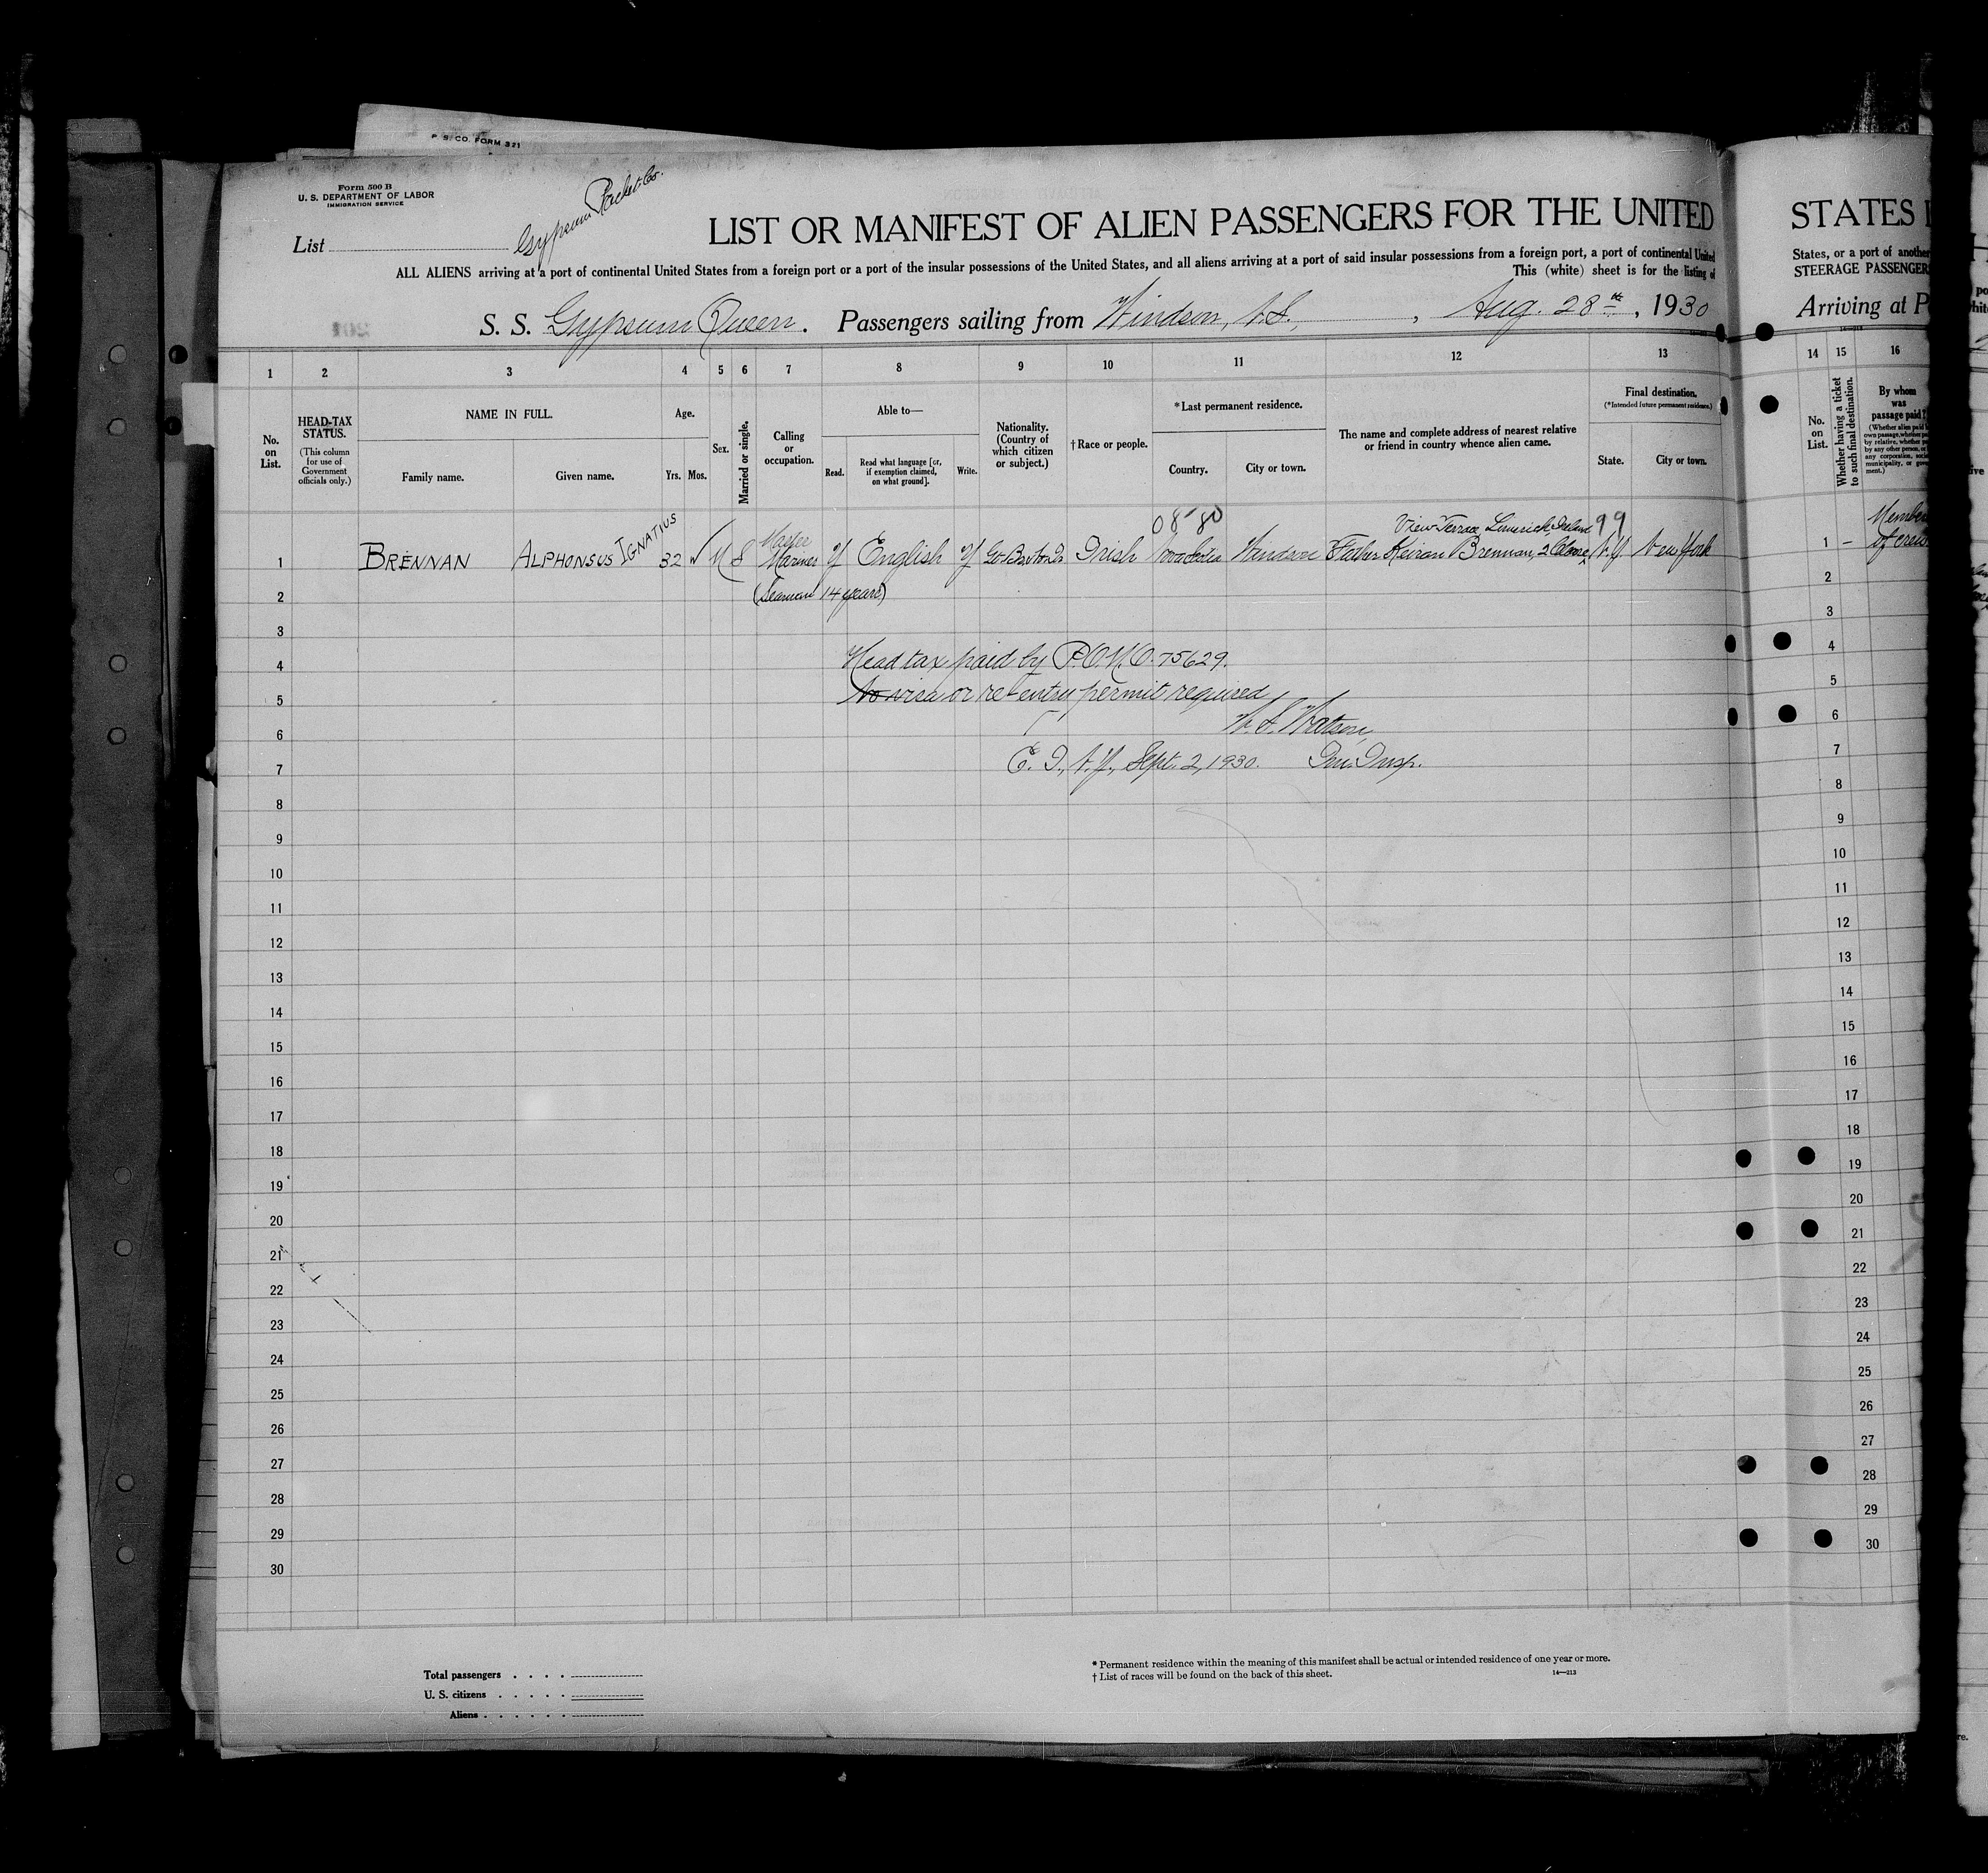 P. S. CO. FORM 321
Form 500 B
U. S. DEPARTMENT OF LABOR
IMMIGRATION SERVICE
List
Gypsum Packet Co.
LIST OR MANIFEST OF ALIEN PASSENGERS FOR THE UNITED
ALL ALIENS arriving at a port of continental United States from a foreign port or a port of the insular possessions of the United States, and all aliens arriving at a port of said insular possessions from a foreign port, a port of continental United
This (white) sheet is for the listing of
S. S. Gypsum Queen. Passengers sailing from Windsor, N.S., Aug. 28th, 1930
STATES I
States, or a port of another
STEERAGE PASSENGERS
Arriving at P
1 2 3 4 5 6 7 8 9 10 11 12 13
14 15 16
No. on List.
HEAD-TAX STATUS.
(This column for use of Government officials only.)
NAME IN FULL.
Family name.
Given name.
Age.
Yrs. Mos.
Sex.
Married or single.
Calling or occupation.
Able to—
Read.
Read what language [or, if exemption claimed, on what ground].
Write.
Nationality. (Country of which citizen or subject.)
†Race or people.
*Last permanent residence.
Country.
City or town.
The name and complete address of nearest relative or friend in country whence alien came.
Final destination.
(*Intended future permanent residence.)
State.
City or town.
No. on List.
Whether having a ticket to such final destination.
By whom was passage paid?
(Whether alien paid
own passage, whether
by relative, whether
by any other person, or
any corporation,
municipality, or
ment.)
08-80
View Terrace, Limerick, Ireland
99
1 BRENNAN ALPHONSUS IGNATIUS 32 M S Master Mariner Y English Y Gt. Br. & No. Ir. Irish Nova Scotia Windsor Father Keiran Brennan, 2 N.Y. New York
1 – Member of crew
(Seaman 14 years)
Head tax paid by P.O.M.O. 75629.
No visa or re-entry permit required
W. S. Watson,
E. I., N.Y., Sept. 2, 1930. Imm. Insp.
2
3
4
5
6
7
8
9
10
11
12
13
14
15
16
17
18
19
20
21
22
23
24
25
26
27
28
29
30
2
3
4
5
6
7
8
9
10
11
12
13
14
15
16
17
18
19
20
21
22
23
24
25
26
27
28
29
30
Total passengers . . . .
U. S. citizens . . . . .
Aliens . . . . . .
* Permanent residence within the meaning of this manifest shall be actual or intended residence of one year or more.
† List of races will be found on the back of this sheet.
14—313